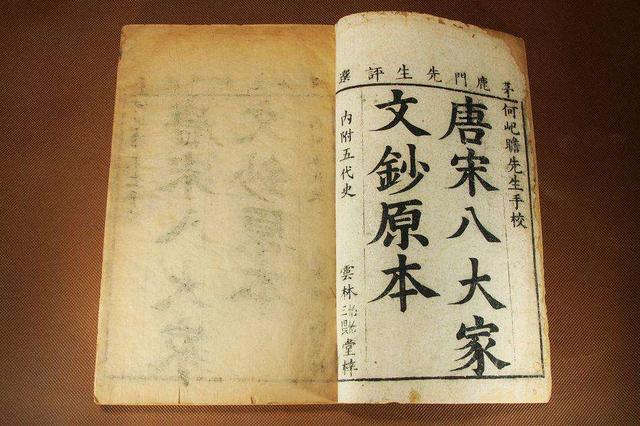 茅鹿門先生評選
何屺瞻先生手校
唐宋八大家
文鈔原本
內附五代史
雲林
堂梓